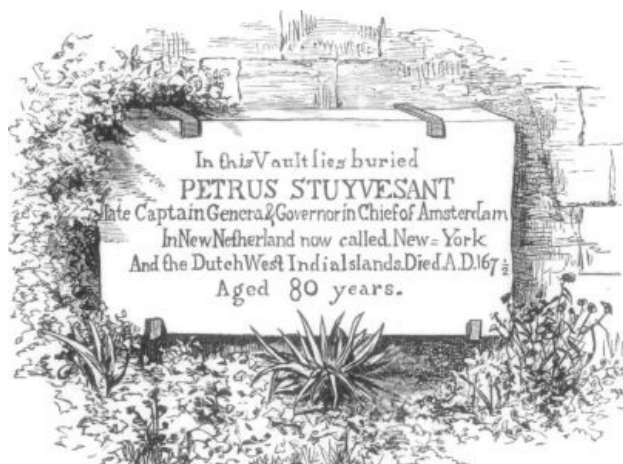 In this Vault lies buried
PETRUS STUYVESANT
late Captain General & Governor in Chief of Amsterdam
In New Netherland now called New=York
And the Dutch West India Islands. Died. A.D. 167½
Aged 80 years.